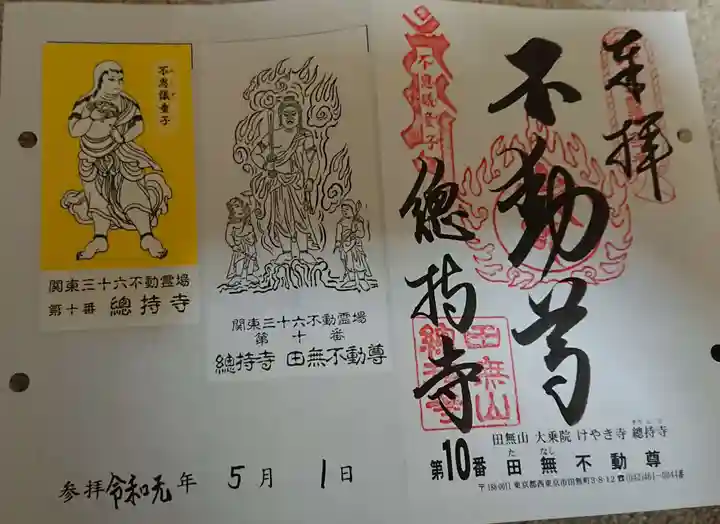 不思議童子
関東三十六不動霊場
第十番 總持寺
関東三十六不動霊場
第十番
總持寺 田無不動尊
奉拝
不動尊
不思議童子
總持寺
田無山
總持寺
田無山 大乗院 けやき寺 總持寺
第10番 田無不動尊
た なし
東京都西東京市田無町3-8-12
参拝 令和元年 5月 1日